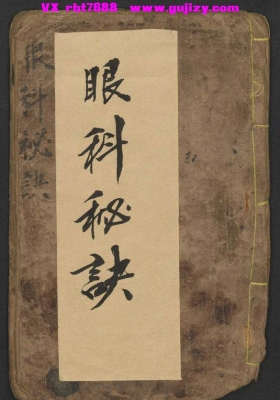 VX_rbt7688 www.gujizy.com
眼科秘訣
眼科秘訣